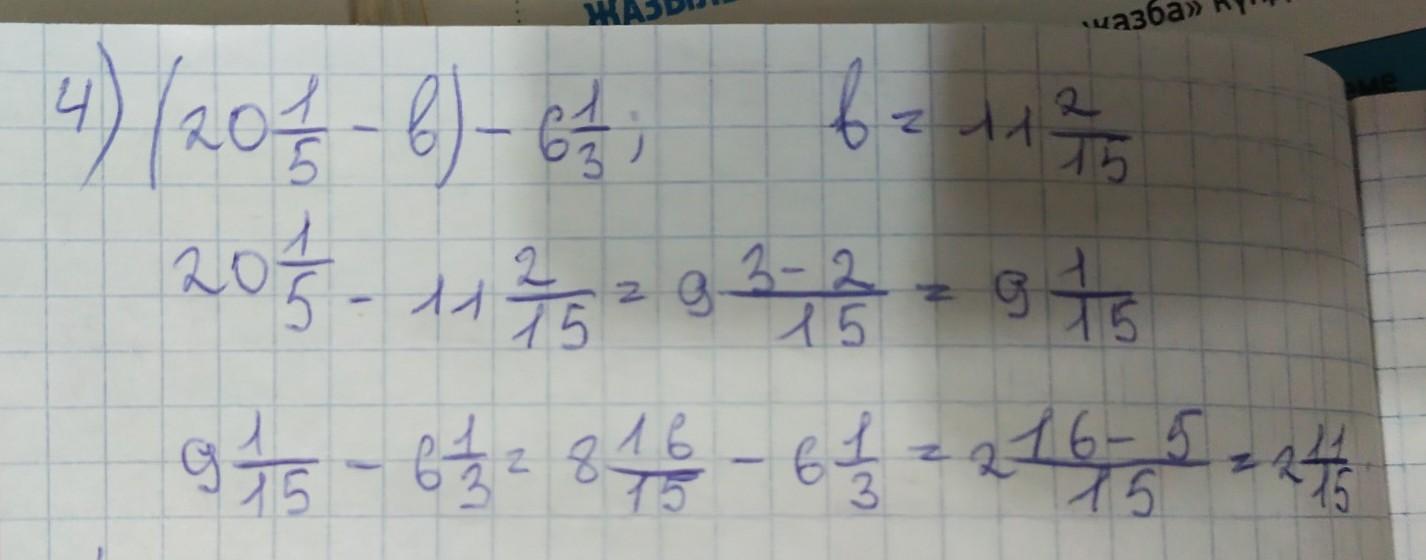 ЖАЗЫЛ
жазба»
4) (20 1/5 - в) - 6 1/3; в = 11 2/15
20 1/5 - 11 2/15 = 9 3-2/15 = 9 1/15
9 1/15 - 6 1/3 = 8 16/15 - 6 1/3 = 2 16-5/15 = 2 11/15